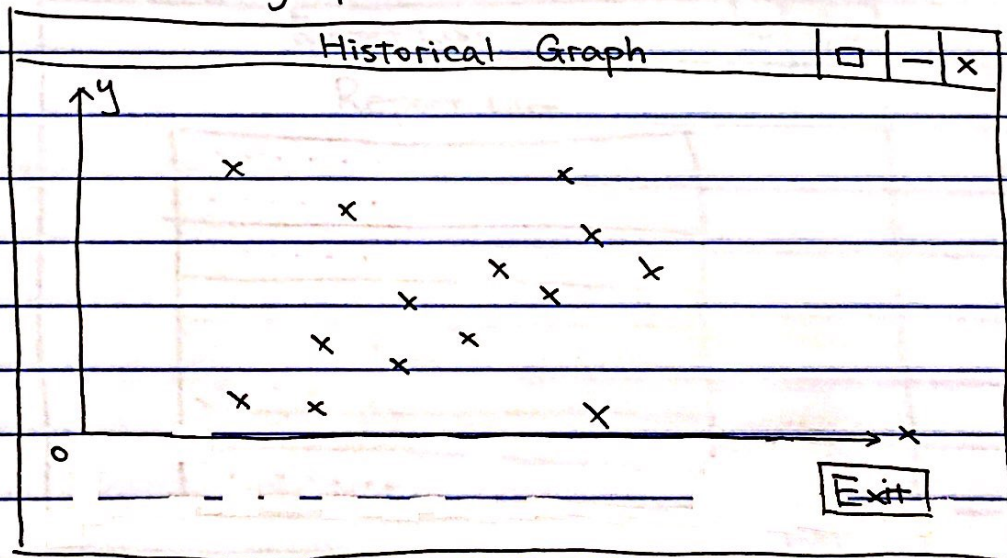 Historical Graph
y
x
0
Exit